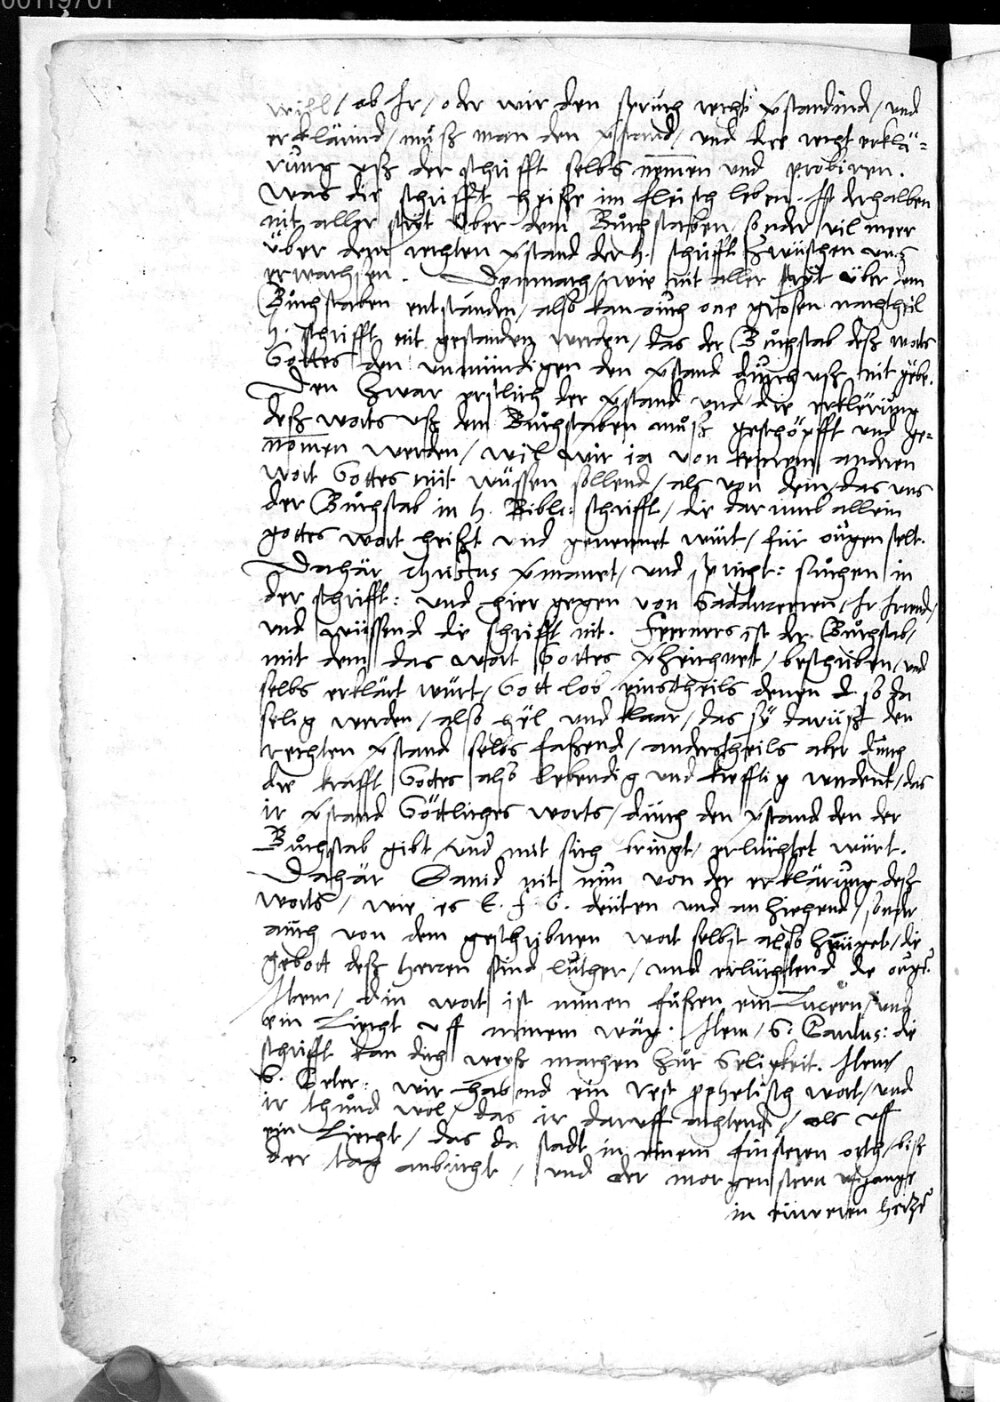 00119701
will / ob Ir / oder wir den spruch recht v̈standind / vnd
erklärind / muͦß man den v̈stand / vnd die recht erklä-
rung vß der schrifft selbs nemen und probiren.
Was die schrifft heisse im fleisch leben. Ist derhalben
nit aller stryt über dem Buͦchstaben, sonder vil meer
über dem rechten v̈stand der h. schrifft zwüschen vns
erwachsen. Demnach / wie nit aller stryt über dem
Buͦchstaben entstanden / also kan auch one grosen nachtheil
h. schrifft nit gestanden werden / das der Buͦchstab deß worts
Gottes den unmündigen den v̈stand durch uß nit gebe.
Den zwar erstlich der v̈stand und die erklerung
deß worts uß dem Buͦchstaben muͦß geschöpfft und ge-
nomen werden / wil wir ia von keinem andren
wort Gottes nüt wüssen sollend / als von dem, das uns
der Buͦchstab in h. Bibl: schrifft / die darumb allein
gottes wort heißt und genennet würt / für ougen stelt.
Dahär Christus v̈manet / und spricht: suͦchen in
der schrifft: und hier gegen von Sadduceeren / Ir Irrend /
und wüssend die schrifft nit. Ferners ist der Buͦchstab /
mit dem das wort Gottes v̈zeichnet / beschriben / und
selbs erklärt würt / Gott lob einstheils denen d so da
selig werden / also häl und klaar / das sÿ darüst den
rechten v̈stand selbs faßend / anderstheils aber durch
die krafft Gottes also lebendig und krefftig werdent / das
ir v̈stand Göttliches worts / durch den v̈stand den der
Buͦchstab gibt / und mit sich bringt / erlüchtet würt.
Dahär David nit nun von der erklärung deß
worts / wie es E. F. G. deüten und anziehend / sonder
auch von dem geschribnen wort selbst also züget / die
gebott deß Herren sind luther / und erlüchtend die ouge͂.
Item / din wort ist minen füßen ein Lucern / und
ein Liecht vff minem wäg. Item / S. Paulus: die
schrifft kan dich wyß machen zur Seligkeit. Item
S. Peter: wir habend ein vest pphetisch wort / und
ir thuͦnd wol / das ir daruff achtend / als vff
ein Liecht / das da stadt in einem finsteren orth / biß
der tag anbricht / und der morgenstern ufgange
in eüweren hertze͂